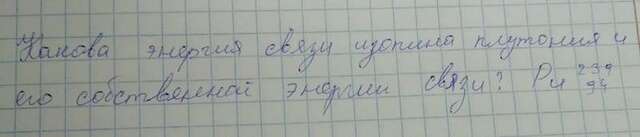 Какова энергия связи изотопа плутония и
его собственной энергии связи? Pu 239 94